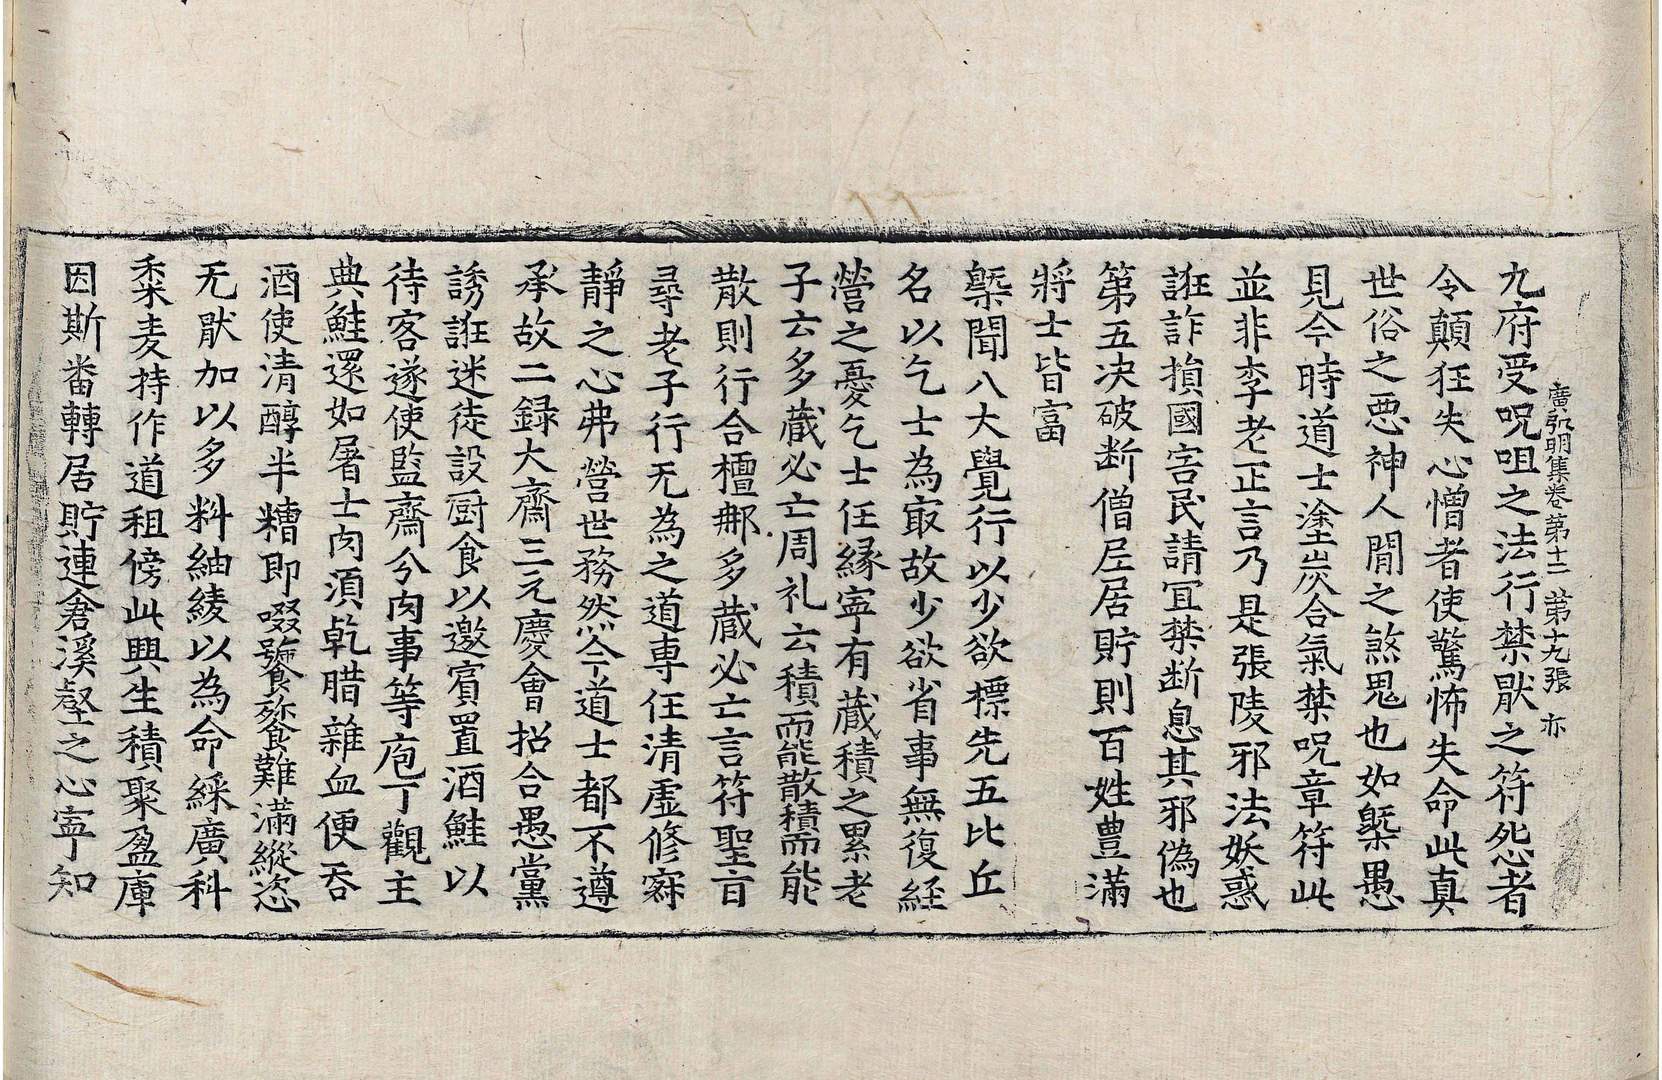 廣弘明集卷第十二 第十九張 亦
九府受呪咀之法行禁厭之符死者
令顛狂失心憎者使驚怖失命此真
世俗之惡神人間之煞鬼也如槩愚
見今時道士塗炭合氣禁呪章符此
並非李老正言乃是張陵邪法妖惑
誑詐損國害民請冝禁断息其邪偽也
第五决破断僧尼居貯則百姓豊滿
將士皆富
槩聞八大覺行以少欲標先五比丘
名以乞士為㝡故少欲省事無復経
營之憂乞士任縁寜有蔵積之累老
子云多蔵必亡周礼云積而能散積而能
散則行合檀那多蔵必亡言符聖旨
尋老子行无為之道専任清虛修寂
靜之心弗營世務然今道士都不遵
承故二録大齋三元慶會招合愚黨
誘誑迷徒設厨食以邀賓置酒鮭以
待客遂使監齋分肉事等庖丁觀主
典鮭還如屠士肉湏乾腊雜血便吞
酒使清醇半糟即啜饕餮難滿縱恣
无猒加以多料紬綾以為命綵廣科
黍麦持作道租傍此興生積聚盈庫
因斯番轉居貯連倉溪壑之心寜知